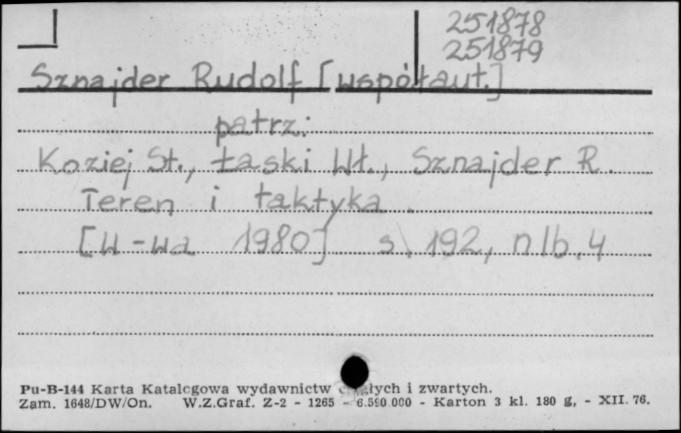 251878
251879
Sznajder Rudolf [współaut.]
patrz:
Koziej St., Łaski Wł., Sznajder R.
Teren i taktyka.
[W-wa 1980] s. 192, nlb. 4
Pu-B-144 Karta Katalogowa wydawnictw ciągłych i zwartych.
Zam. 1648/DW/On. W.Z.Graf. Z-2 - 1265 - 6.590.000 - Karton 3 kl. 180 g, - XII. 76.